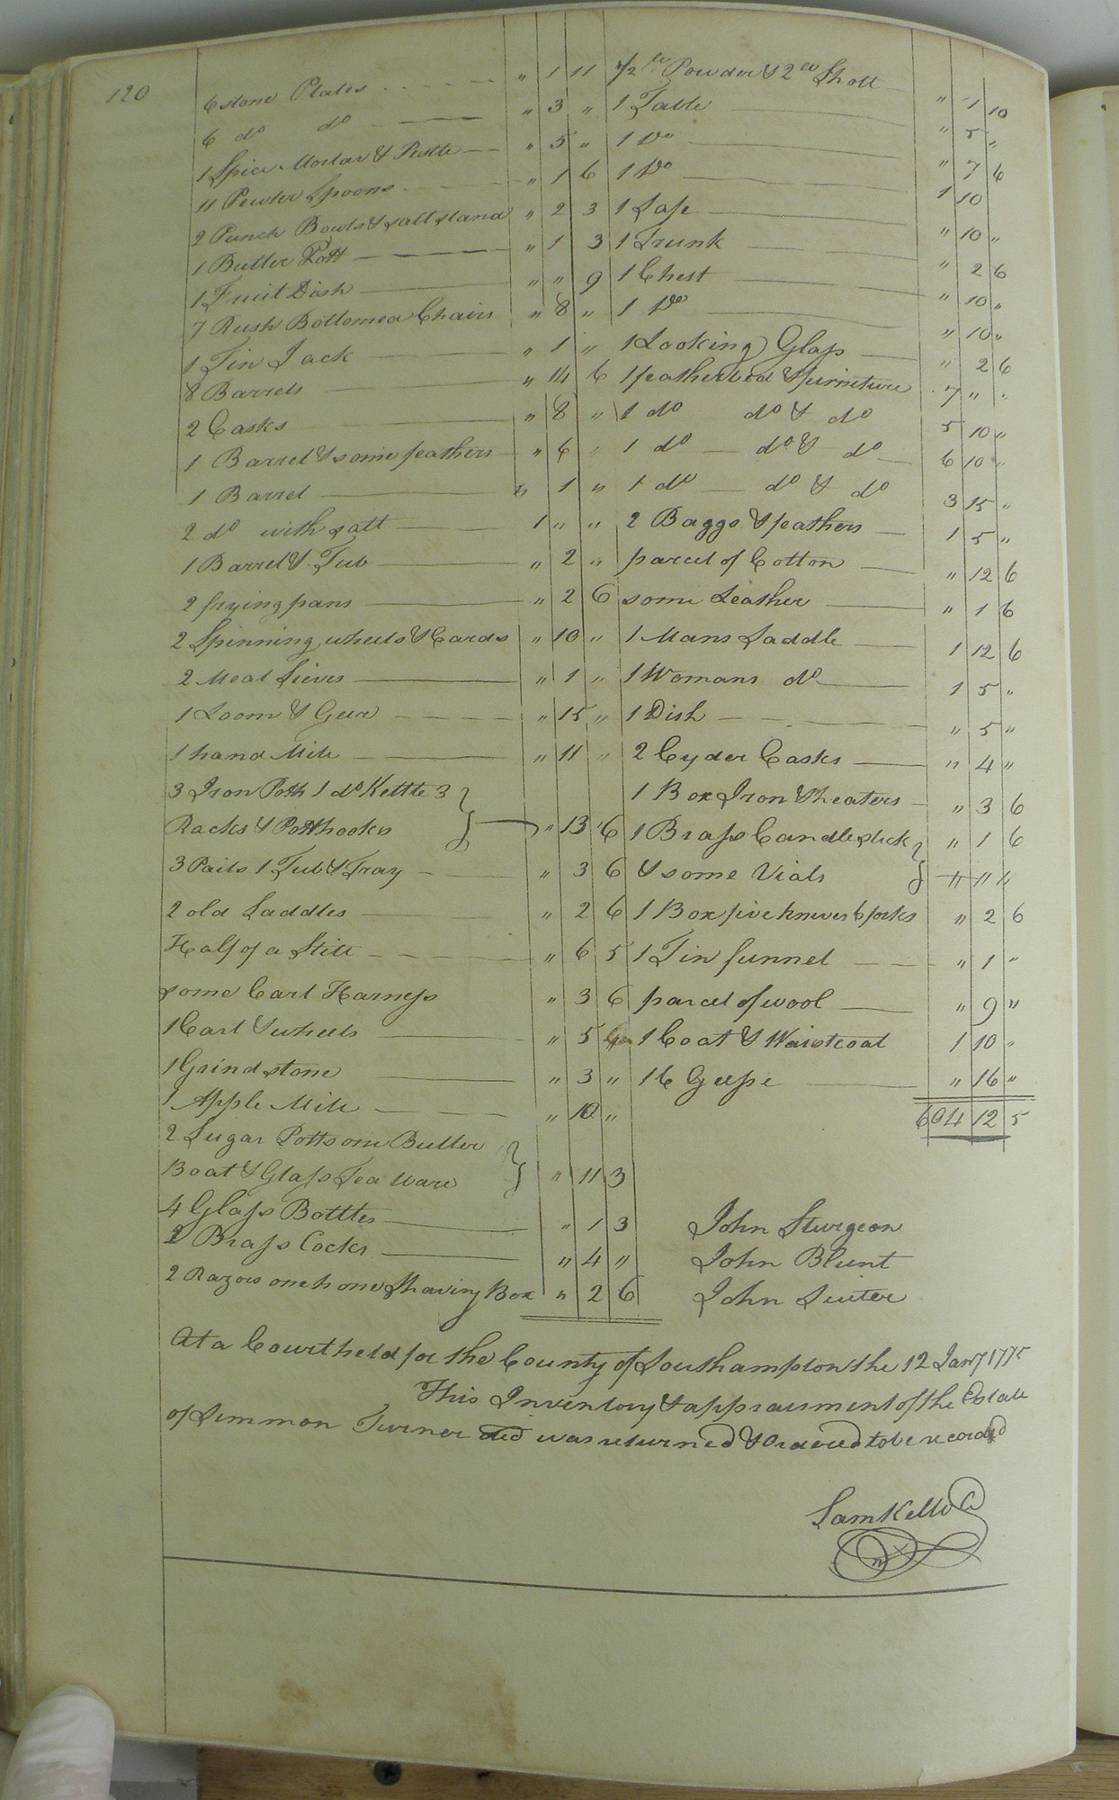 120
6 stone Plates " 1 11
6 do do " 3 "
1 Spice Mortar & Pestle " 5 "
11 Pewter Spoons " 1 6
2 Punch Bowls & salt stand " 2 3
1 Butter Pott " 1 3
1 Fruit Dish " " 9
7 Rush Bottomed Chairs " 8 "
1 Tin Jack " 1 "
8 Barrels " 14 6
2 Casks " 8 "
1 Barrel & some feathers " 6 "
1 Barrel " 1 "
2 do with salt 1 " "
1 Barrel & Tub " 2 "
2 frying pans " 2 6
2 Spinning wheels & Cards " 10 "
2 Meal Sieves " 1 "
1 Loom & Geer " 15 "
1 hand Mill " 11 "
3 Iron Potts 1 do Kettle 3
Racks & Potthooks } " 13 6
3 Pails 1 Tub & Tray " 3 6
2 old Saddles " 2 6
Half of a Still " 6 5
some Cart Harness " 3 6
1 Cart & wheels " 5
1 Grindstone " 3 "
1 Apple Mill " 10 "
2 Sugar Potts one Butter
Boat & Glass Tea ware } " 11 3
4 Glass Bottles " 1 3
2 Brass Cocks " 4 "
2 Razors one hone Shaving Box " 2 6
1/2 lb Powder & 2 lb Shott " 1 10
1 Table " 5 "
1 Do " 7 6
1 Do 1 10
1 Safe " 10 "
1 Trunk " 2 6
1 Chest " 10 "
1 Do " 10 "
1 Looking Glass " 2 6
1 featherbed & furniture 7 " "
1 do do & do 5 10 "
1 do do & do 6 10 "
1 do do & do 3 15 "
2 Baggs & feathers 1 5 "
parcel of Cotton " 12 6
some Leather " 1 6
1 Mans Saddle 1 12 6
1 Womans do 1 5 "
1 Dish " 5 "
2 Cyder Casks " 4 "
1 Box Iron & heaters " 3 6
1 Brass Candlestick } " 1 6
& some Vials " " "
1 Box five knives 6 forks " 2 6
1 Tin funnel " 1 "
parcel of wool " 9 "
1 Coat & Waistcoat 1 10 "
16 Geese " 16 "
604 12 5
John Sturgeon
John Blunt
John Suiter
At a Court held for the County of Southampton the 12 Jany 1775
This Inventory & appraisment of the Estate
of Simmon Turner decd was returned & Ordered to be recorded
Sam Kello C